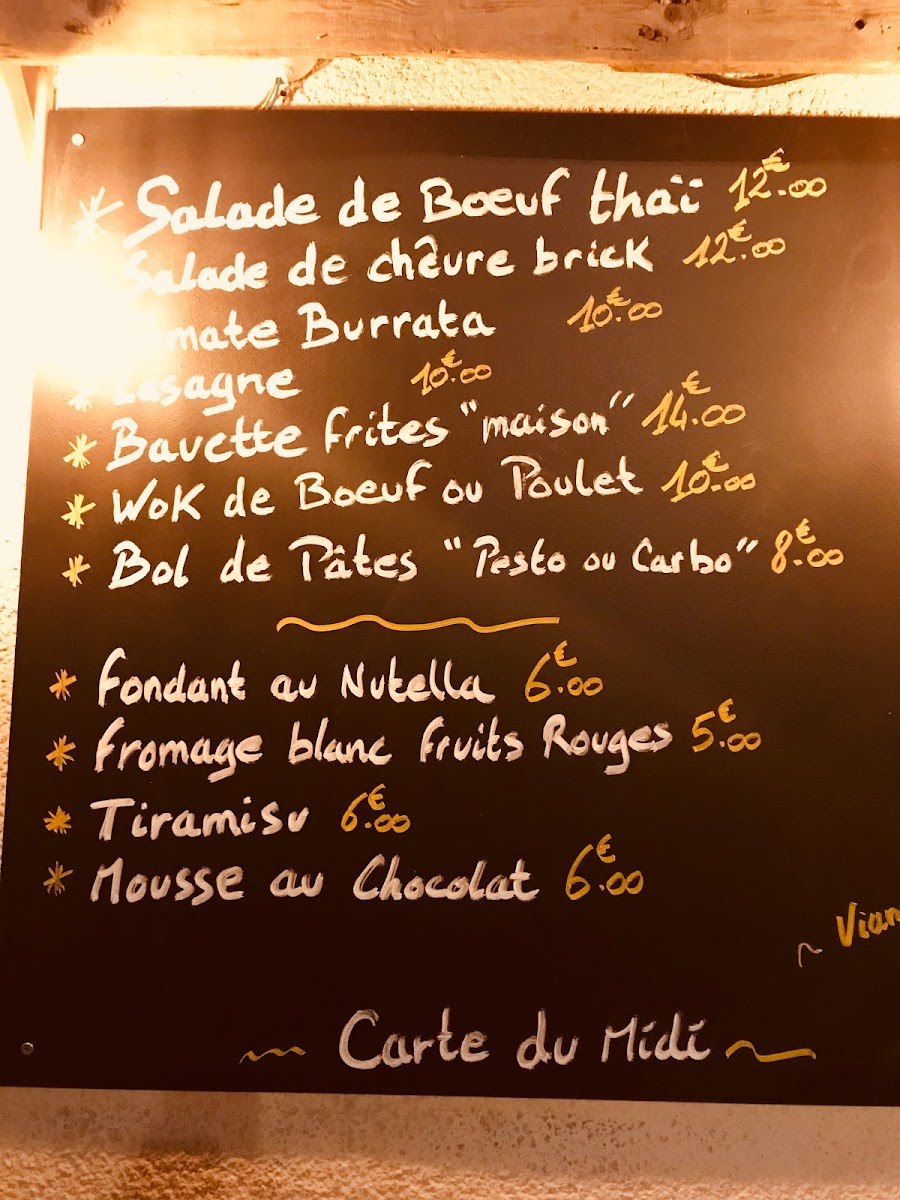 * Salade de Bœuf thaï 12€.00
Salade de chèvre brick 12€.00
Tomate Burrata 10€.00
* Lasagne 10€.00
* Bavette frites "maison" 14€.00
* Wok de Boeuf ou Poulet 10€.00
* Bol de Pâtes "Pesto ou Carbo" 8€.00
* Fondant au Nutella 6€.00
* Fromage blanc fruits Rouges 5€.00
* Tiramisu 6€.00
* Mousse au Chocolat 6€.00
~ Vian
~ Carte du Midi ~